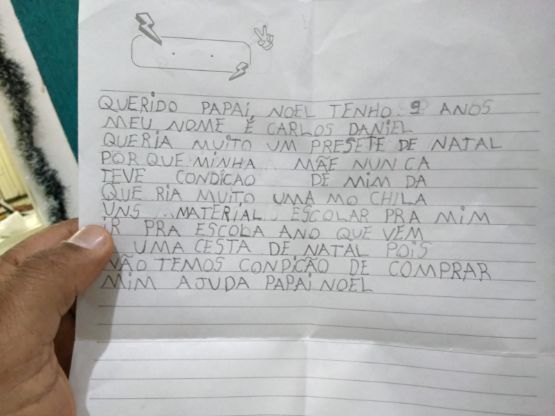 QUERIDO PAPAI NOEL TENHO 9 ANOS
MEU NOME É CARLOS DANIEL
QUERIA MUITO UM PRESETE DE NATAL
POR QUE MINHA MÃE NUN CA
TEVE CONDICAO DE MIM DA
QUE RIA MUITO UMA MO CHILA
UNS MATERIAL ESCOLAR PRA MIM
IR PRA ESCOLA ANO QUE VEM
UMA CESTA DE NATAL POIS
NÃO TEMOS CONDICÃO DE COMPRAR
MIM AJUDA PAPAI NOEL